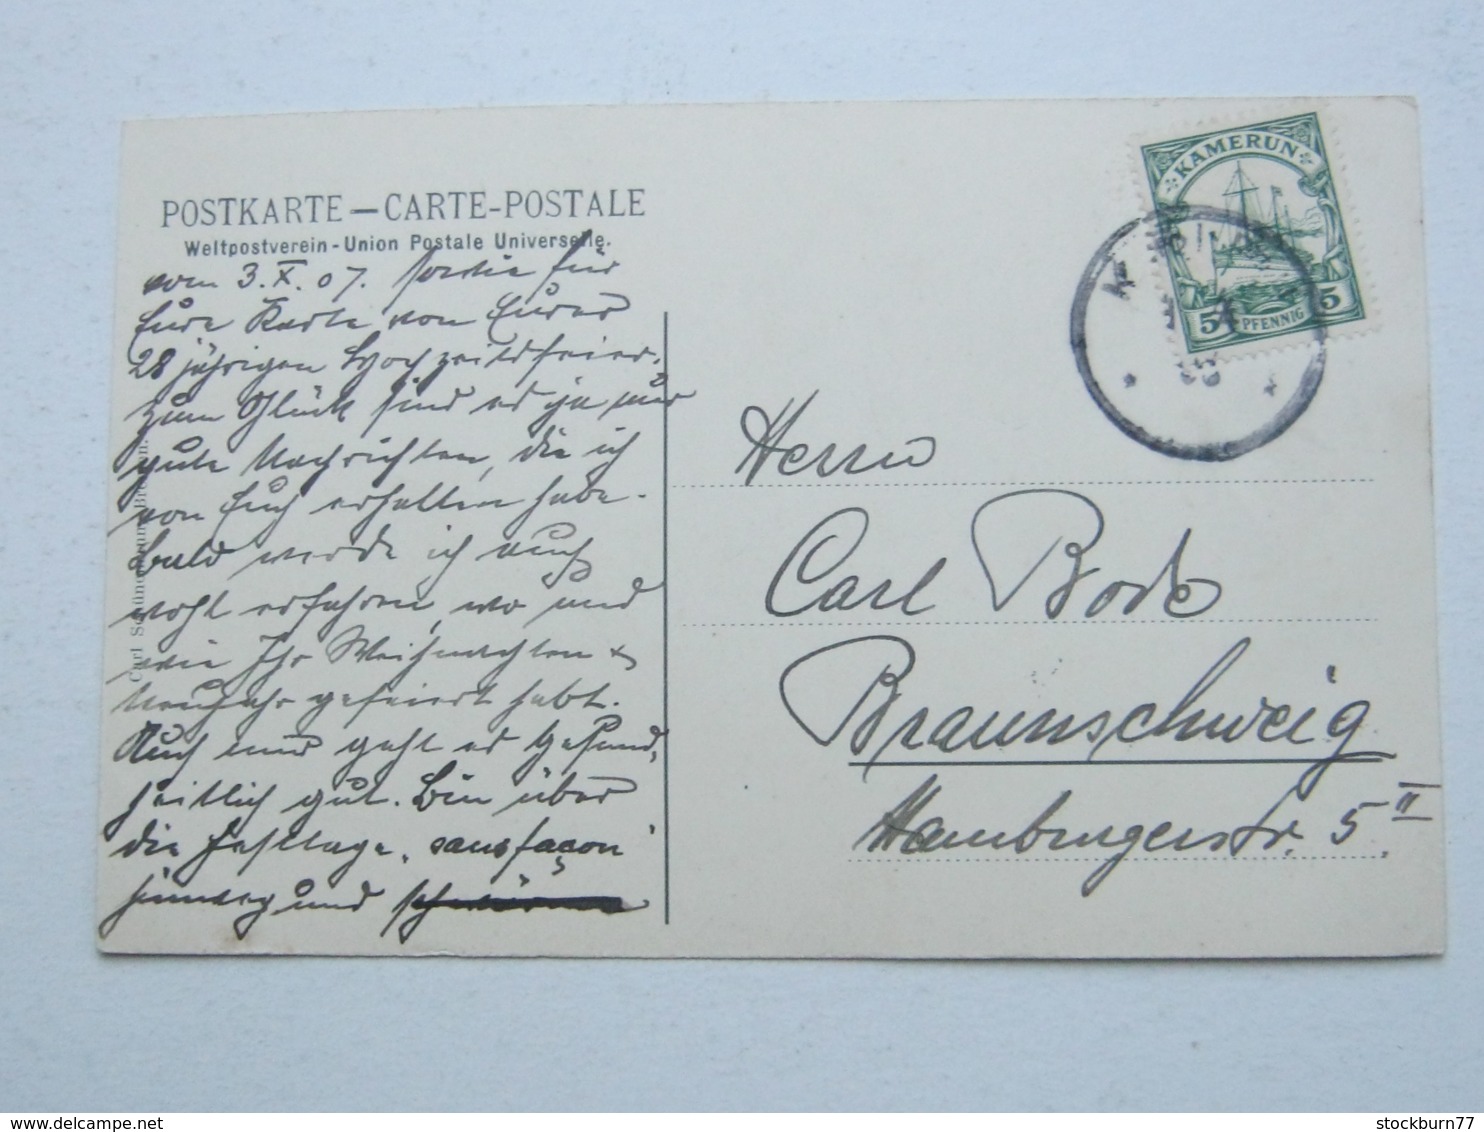 POSTKARTE — CARTE-POSTALE
Weltpostverein - Union Postale Universelle.
vom 3. X. 07. für
Eure Karte von Eurer
28 jährigen Hochzeitsfeier.
Zum Glück sind es ja nur
gute Nachrichten, die ich
von Euch erhalten habe.
Bald werde ich auch
wohl erfahren, wo und
wie Ihr Weihnachten &
Neujahr gefeiert habt.
Auch mir geht es gesund-
heitlich gut. Bin über
die Festtage „sans façon“
hinweg und
Carl Schünemann, Bremen.
KAMERUN
5 PFENNIG 5
Herrn
Carl Bode
Braunschweig
Hamburgerstr. 5 II
stockburn77